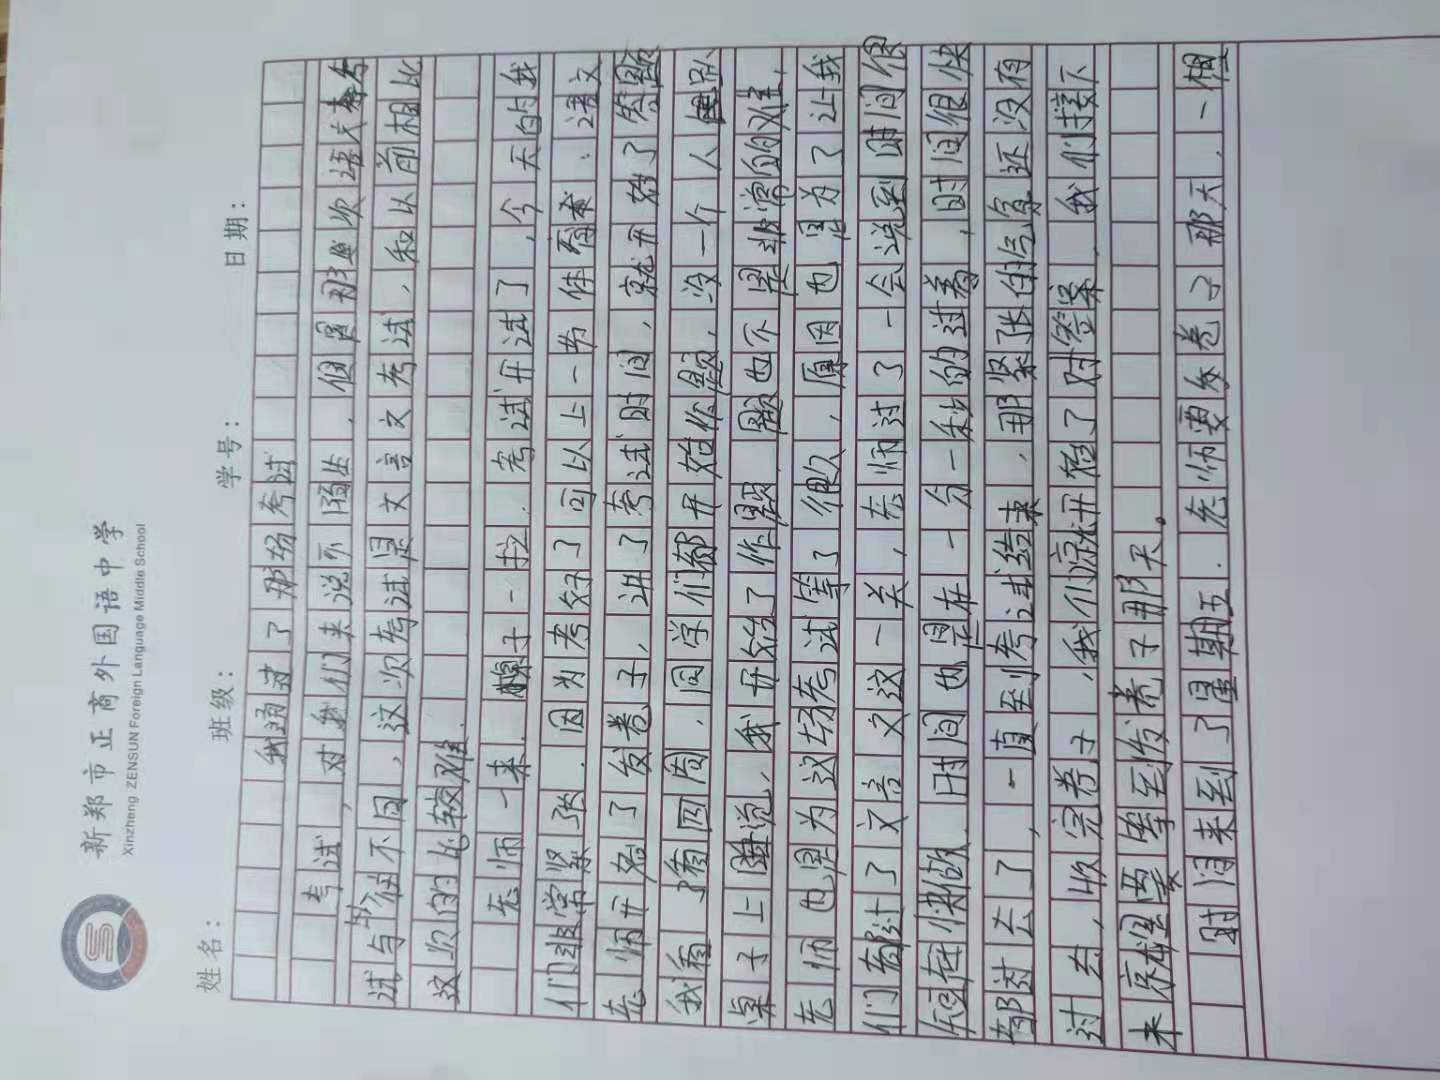 新郑市正商外国语中学
Xinzheng ZENSUN Foreign Language Middle School
姓名： 班级： 学号： 日期：
我通过了那场考试
考试，对我们来说不陌生，但是那些次语文考
试与往不同，这次考试是文言文考试，和以前相比
这次的比较难．
老师一来．桌子一拉．考试开试了，今天的我
们非常紧张．因为考好了可以上一书体育：语文
老师开始了发卷子，讲了考试时间，就开始了答题
我看了看四周．同学们都开始作题，没一个人
桌子上 说，我开始了作题．题也不是非常的难，
老师也是为这场考试等了很久，原因也是为了让我
们都过了文言文这一关，老师过了一会说到时间很
快 时间也是在一分一秒的过着，时间很快
都过去了，一直到考试结束，那紧张的气氛还没有
过去，收完卷子，我们就开始了对答案，我们接下
来 是要等到发卷子那天。
时间来到了星期五．老师要发卷子那天．一